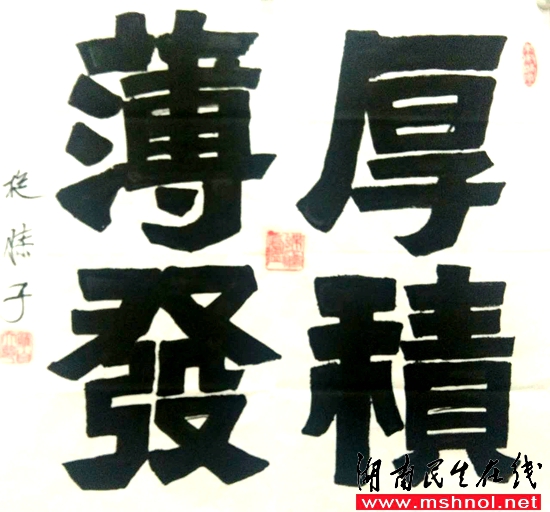 厚積
薄發
湖南民生在线
www.mshnol.net